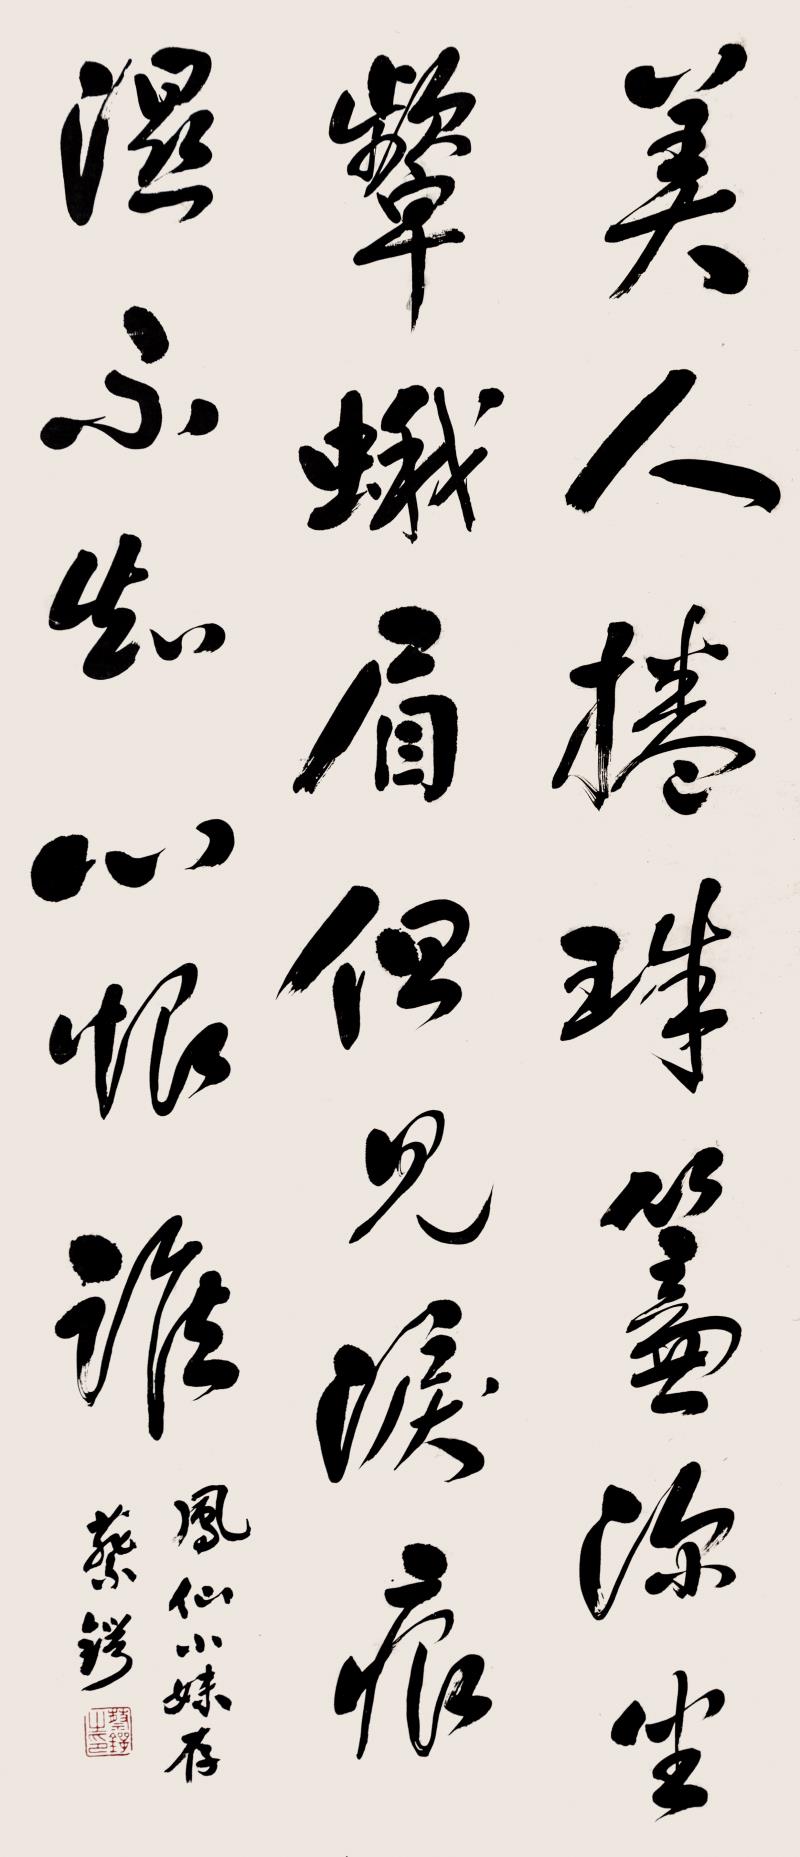 美人捲珠簾深坐
顰蛾眉但見淚痕
濕不知心恨誰
鳳仙小妹存
蔡鍔
蔡鍔之印